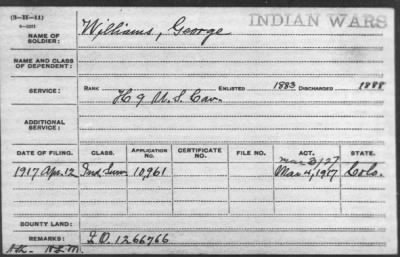 (3-III-11)
INDIAN WARS
NAME OF SOLDIER: Williams, George
NAME AND CLASS OF DEPENDENT:
SERVICE: RANK ENLISTED 1883 DISCHARGED 1888
H 9 U.S. Cav.
ADDITIONAL SERVICE:
DATE OF FILING. CLASS. APPLICATION NO. CERTIFICATE NO. FILE NO. ACT. STATE.
Mar 3/27
1917 Apr. 12 Ind. Surv. 10,961 Mar 4, 1917 Colo.
BOUNTY LAND:
REMARKS: I.O. 1266766